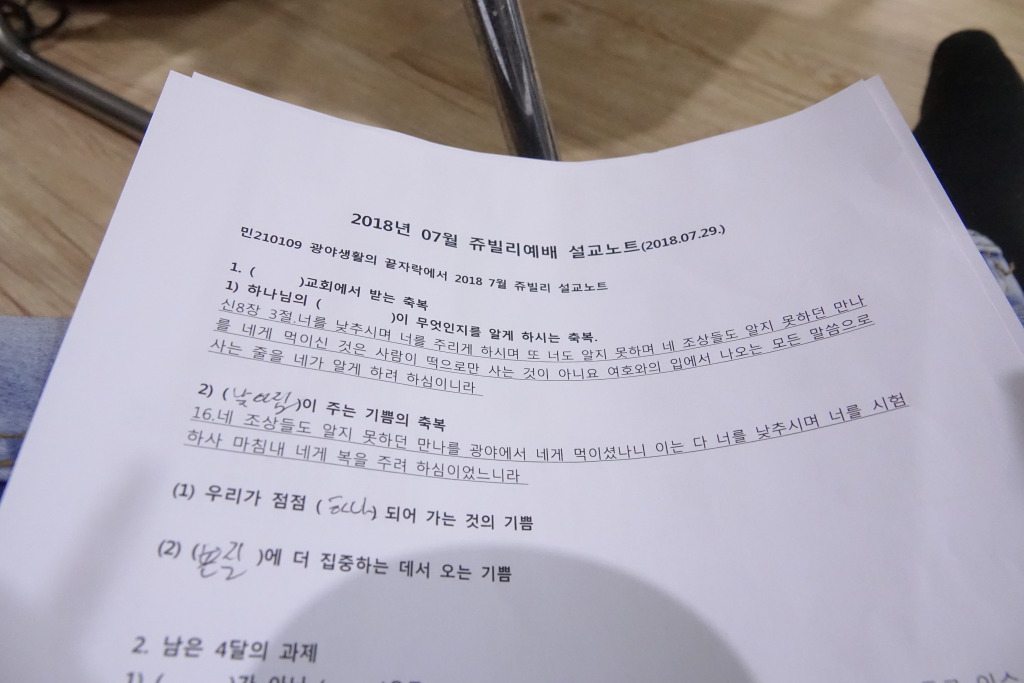 2018년 07월 쥬빌리예배 설교노트(2018.07.29.)
민210109 광야생활의 끝자락에서 2018 7월 쥬빌리 설교노트
1. ( )교회에서 받는 축복
1) 하나님의 ( )이 무엇인지를 알게 하시는 축복.
신8장 3절.너를 낮추시며 너를 주리게 하시며 또 너도 알지 못하며 네 조상들도 알지 못하던 만나
를 네게 먹이신 것은 사람이 떡으로만 사는 것이 아니요 여호와의 입에서 나오는 모든 말씀으로
사는 줄을 네가 알게 하려 하심이니라
2) (낮아짐)이 주는 기쁨의 축복
16.네 조상들도 알지 못하던 만나를 광야에서 네게 먹이셨나니 이는 다 너를 낮추시며 너를 시험
하사 마침내 네게 복을 주려 하심이었느니라
(1) 우리가 점점 (하나) 되어 가는 것의 기쁨
(2) (본질 )에 더 집중하는 데서 오는 기쁨
2. 남은 4달의 과제
1) ( )가 아닌 (